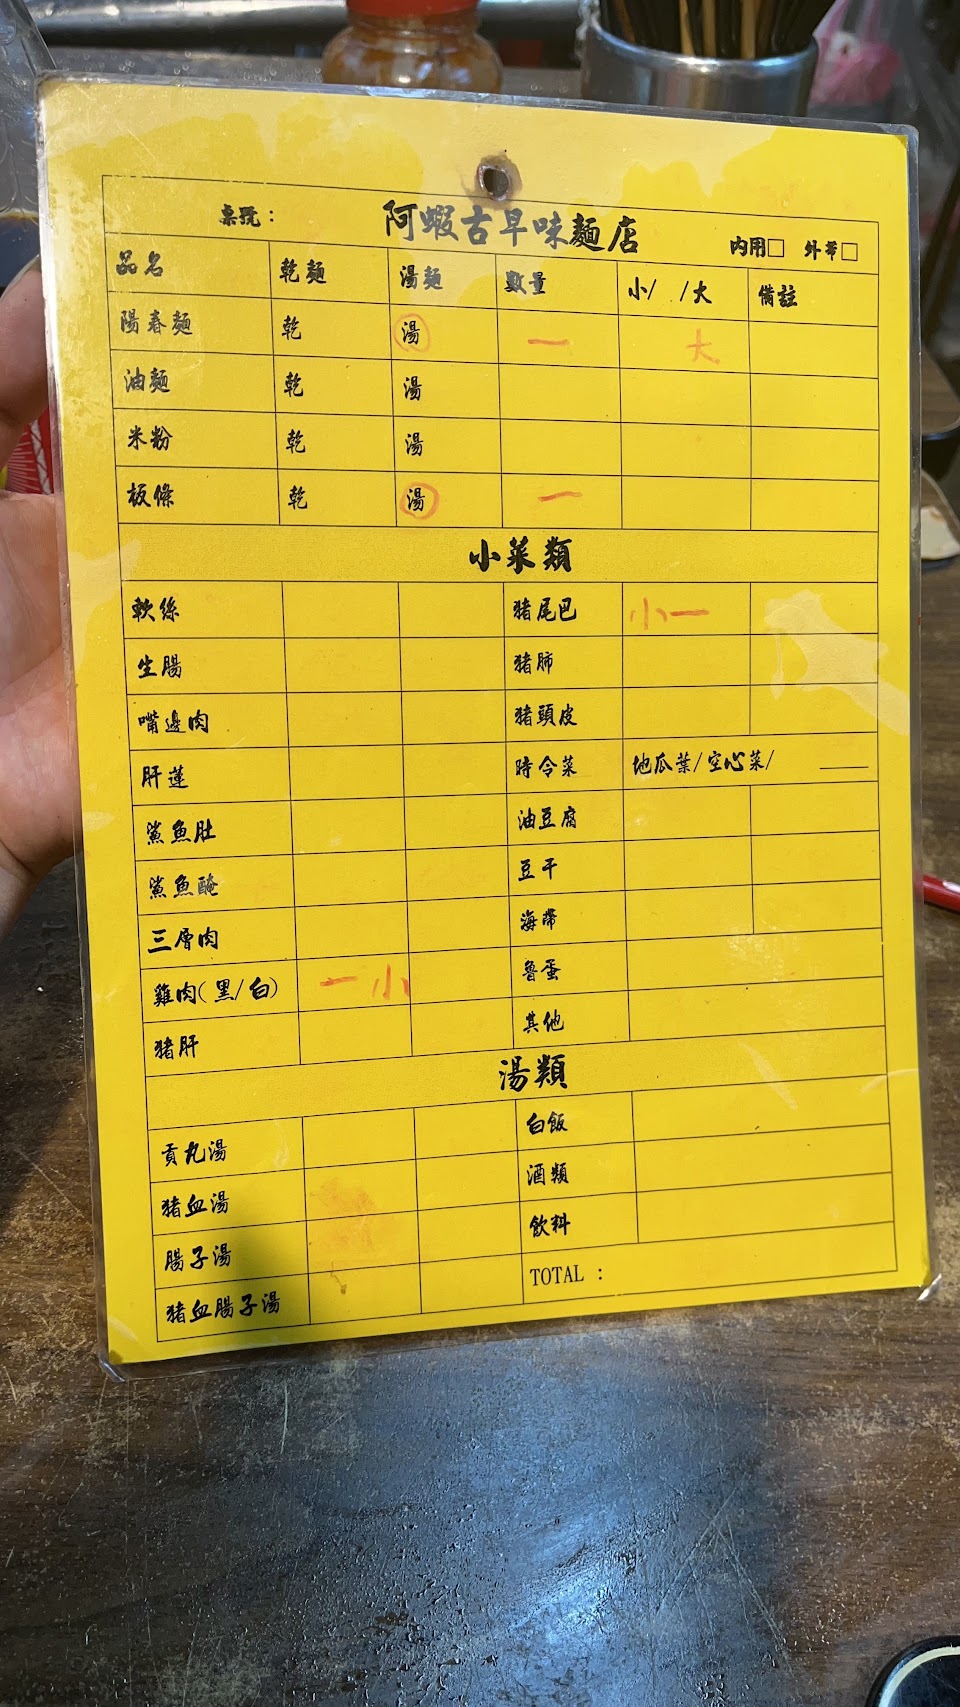 桌號： 阿蝦古早味麵店 內用□ 外帶□
品名 乾麵 湯麵 數量 小/ /大 備註
陽春麵 乾 湯 一 大
油麵 乾 湯
米粉 乾 湯
板條 乾 湯 一
小菜類
軟絲 豬尾巴 小一
生腸 豬肺
嘴邊肉 豬頭皮
肝蓮 時令菜 地瓜葉/空心菜/ ____
鯊魚肚 油豆腐
鯊魚醃 豆干
三層肉 海帶
雞肉(黑/白) 一小 魯蛋
豬肝 其他
湯類
貢丸湯 白飯
豬血湯 酒類
腸子湯 飲料
豬血腸子湯 TOTAL：